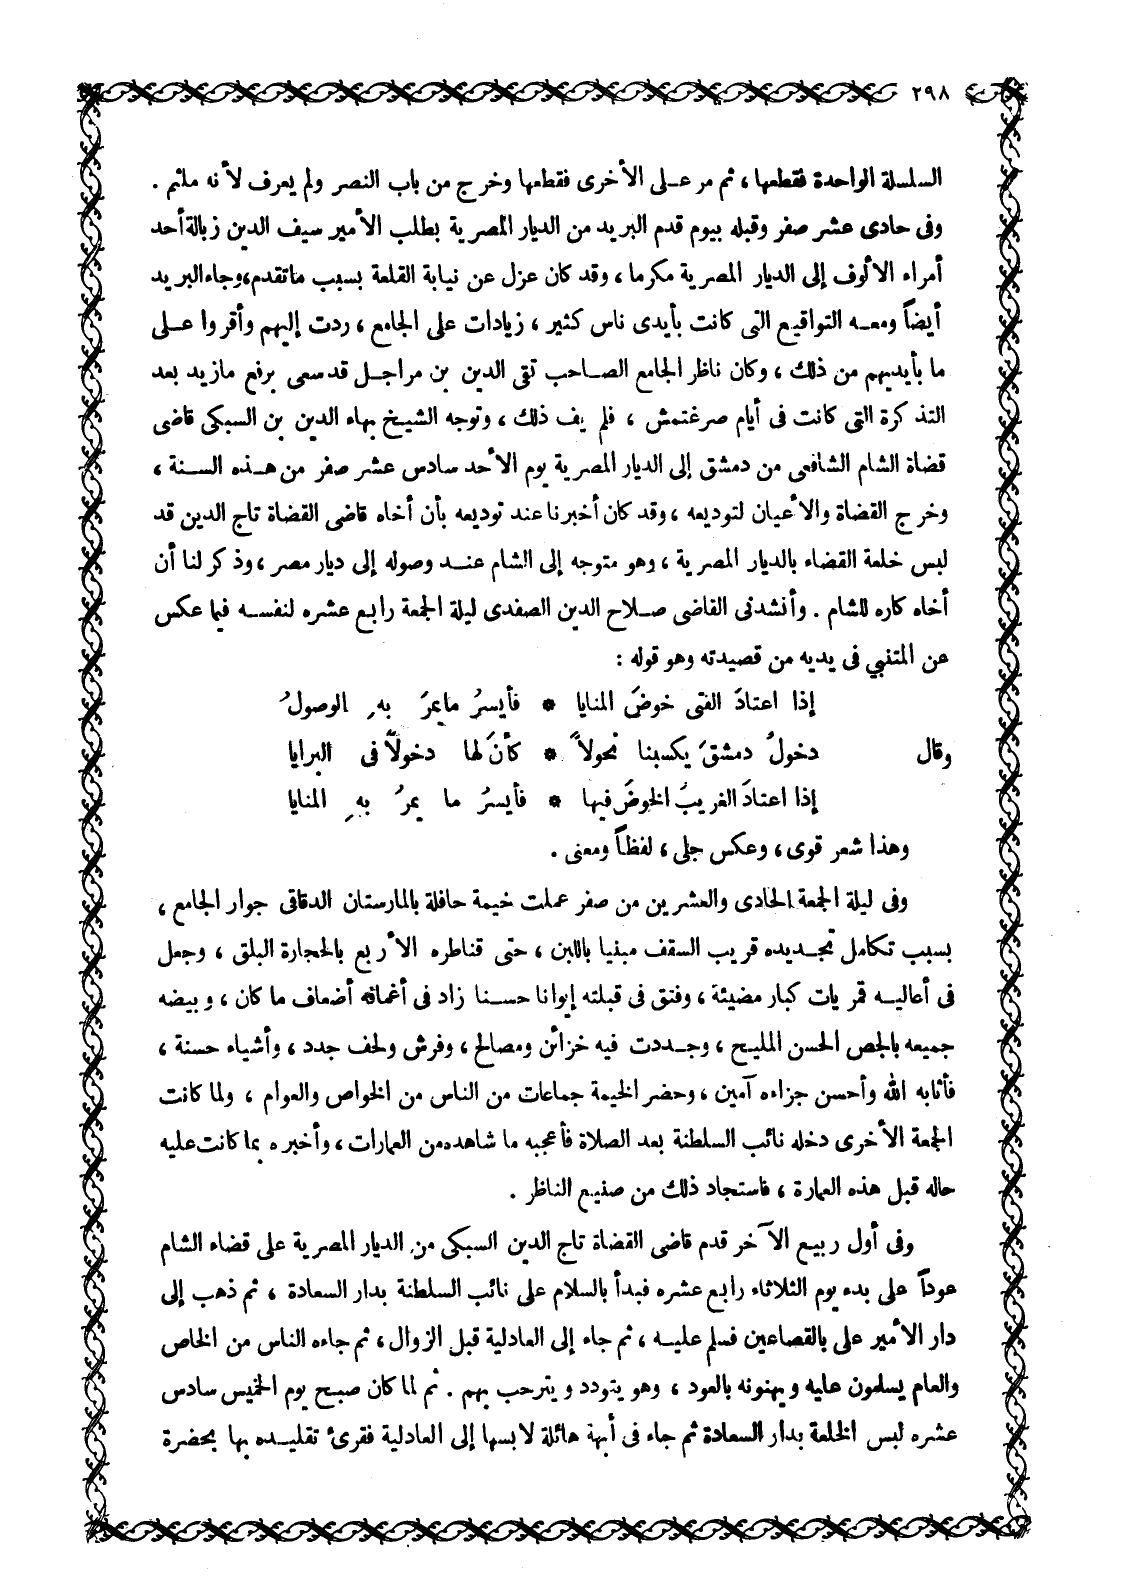 ٢٩٨
السلسلة الواحدة فقطعها ، ثم مر على الأخرى فقطعها وخرج من باب النصر ولم يعرف لأنه ملثم .
وفى حادى عشر صفر وقبله بيوم قدم البريد من الديار المصرية بطلب الأمير سيف الدين زبالة أحد
أمراء الألوف إلى الديار المصرية مكرما ، وقد كان عزل عن نيابة القلعة بسبب ما تقدم ، وجاء البريد
أيضاً ومعه التواقيع التى كانت بأيدى ناس كثير ، زيادات على الجامع ، ردت إليهم وأقروا على
ما بأيديهم من ذلك ، وكان ناظر الجامع الصاحب تقى الدين بن مراجل قد سعى برفع ما زيد بعد
التذكرة التى كانت فى أيام صرغتمش ، فلم يف ذلك ، وتوجه الشيخ بهاء الدين بن السبكى قاضى
قضاة الشام الشافعى من دمشق إلى الديار المصرية يوم الأحد سادس عشر صفر من هذه السنة ،
وخرج القضاة والأعيان لتوديعه ، وقد كان أخبرنا عند توديعه بأن أخاه قاضى القضاة تاج الدين قد
لبس خلعة القضاء بالديار المصرية ، وهو متوجه إلى الشام عند وصوله إلى ديار مصر ، وذكر لنا أن
أخاه كاره للشام . وأنشدنى القاضى صلاح الدين الصفدى ليلة الجمعة رابع عشره لنفسه فيما عكس
عن المتنبي فى يديه من قصيدته وهو قوله :
إذا اعتادَ الفتى خوضَ المنايا * فأيسرُ ما يمرَ بهِ الوصولُ
وقال دخولُ دمشقَ يكسبنا نحولاً * كأنَ لها دخولاً فى البرايا
إذا اعتادَ الغريبُ الخوضَ فيها * فأيسرُ ما يمرُ بهِ المنايا
وهذا شعر قوى ، وعكس جلى ، لفظاً ومعنى .
وفى ليلة الجمعة الحادى والعشرين من صفر عملت خيمة حافلة بالمارستان الدقاقى جوار الجامع ،
بسبب تكامل تجديده قريب السقف مبنيا باللبن ، حتى قناطره الأربع بالحجارة البلق ، وجعل
فى أعاليه قمريات كبار مضيئة ، وفتق فى قبلته إيوانا حسنا زاد فى أعماقه أضعاف ما كان ، وبيضه
جميعه بالجص الحسن المليح ، وجددت فيه خزائن ومصالح ، وفرش ولحف جدد ، وأشياء حسنة ،
فأثابه الله وأحسن جزاءه آمين ، وحضر الخيمة جماعات من الناس من الخواص والعوام ، ولما كانت
الجمعة الأخرى دخله نائب السلطنة بعد الصلاة فأعجبه ما شاهده من العمارات ، وأخبره بما كانت عليه
حاله قبل هذه العمارة ، فاستجاد ذلك من صنيع الناظر .
وفى أول ربيع الآخر قدم قاضى القضاة تاج الدين السبكى من الديار المصرية على قضاء الشام
عوداً على بدء يوم الثلاثاء رابع عشره فبدأ بالسلام على نائب السلطنة بدار السعادة ، ثم ذهب إلى
دار الأمير على بالقصاعين فسلم عليه ، ثم جاء إلى العادلية قبل الزوال ، ثم جاءه الناس من الخاص
والعام يسلمون عليه ويهنونه بالعود ، وهو يتودد ويترحب بهم . ثم لما كان صبح يوم الخميس سادس
عشره لبس الخلعة بدار السعادة ثم جاء فى أبهة هائلة لابسها إلى العادلية فقرئ تقليده بها بحضرة